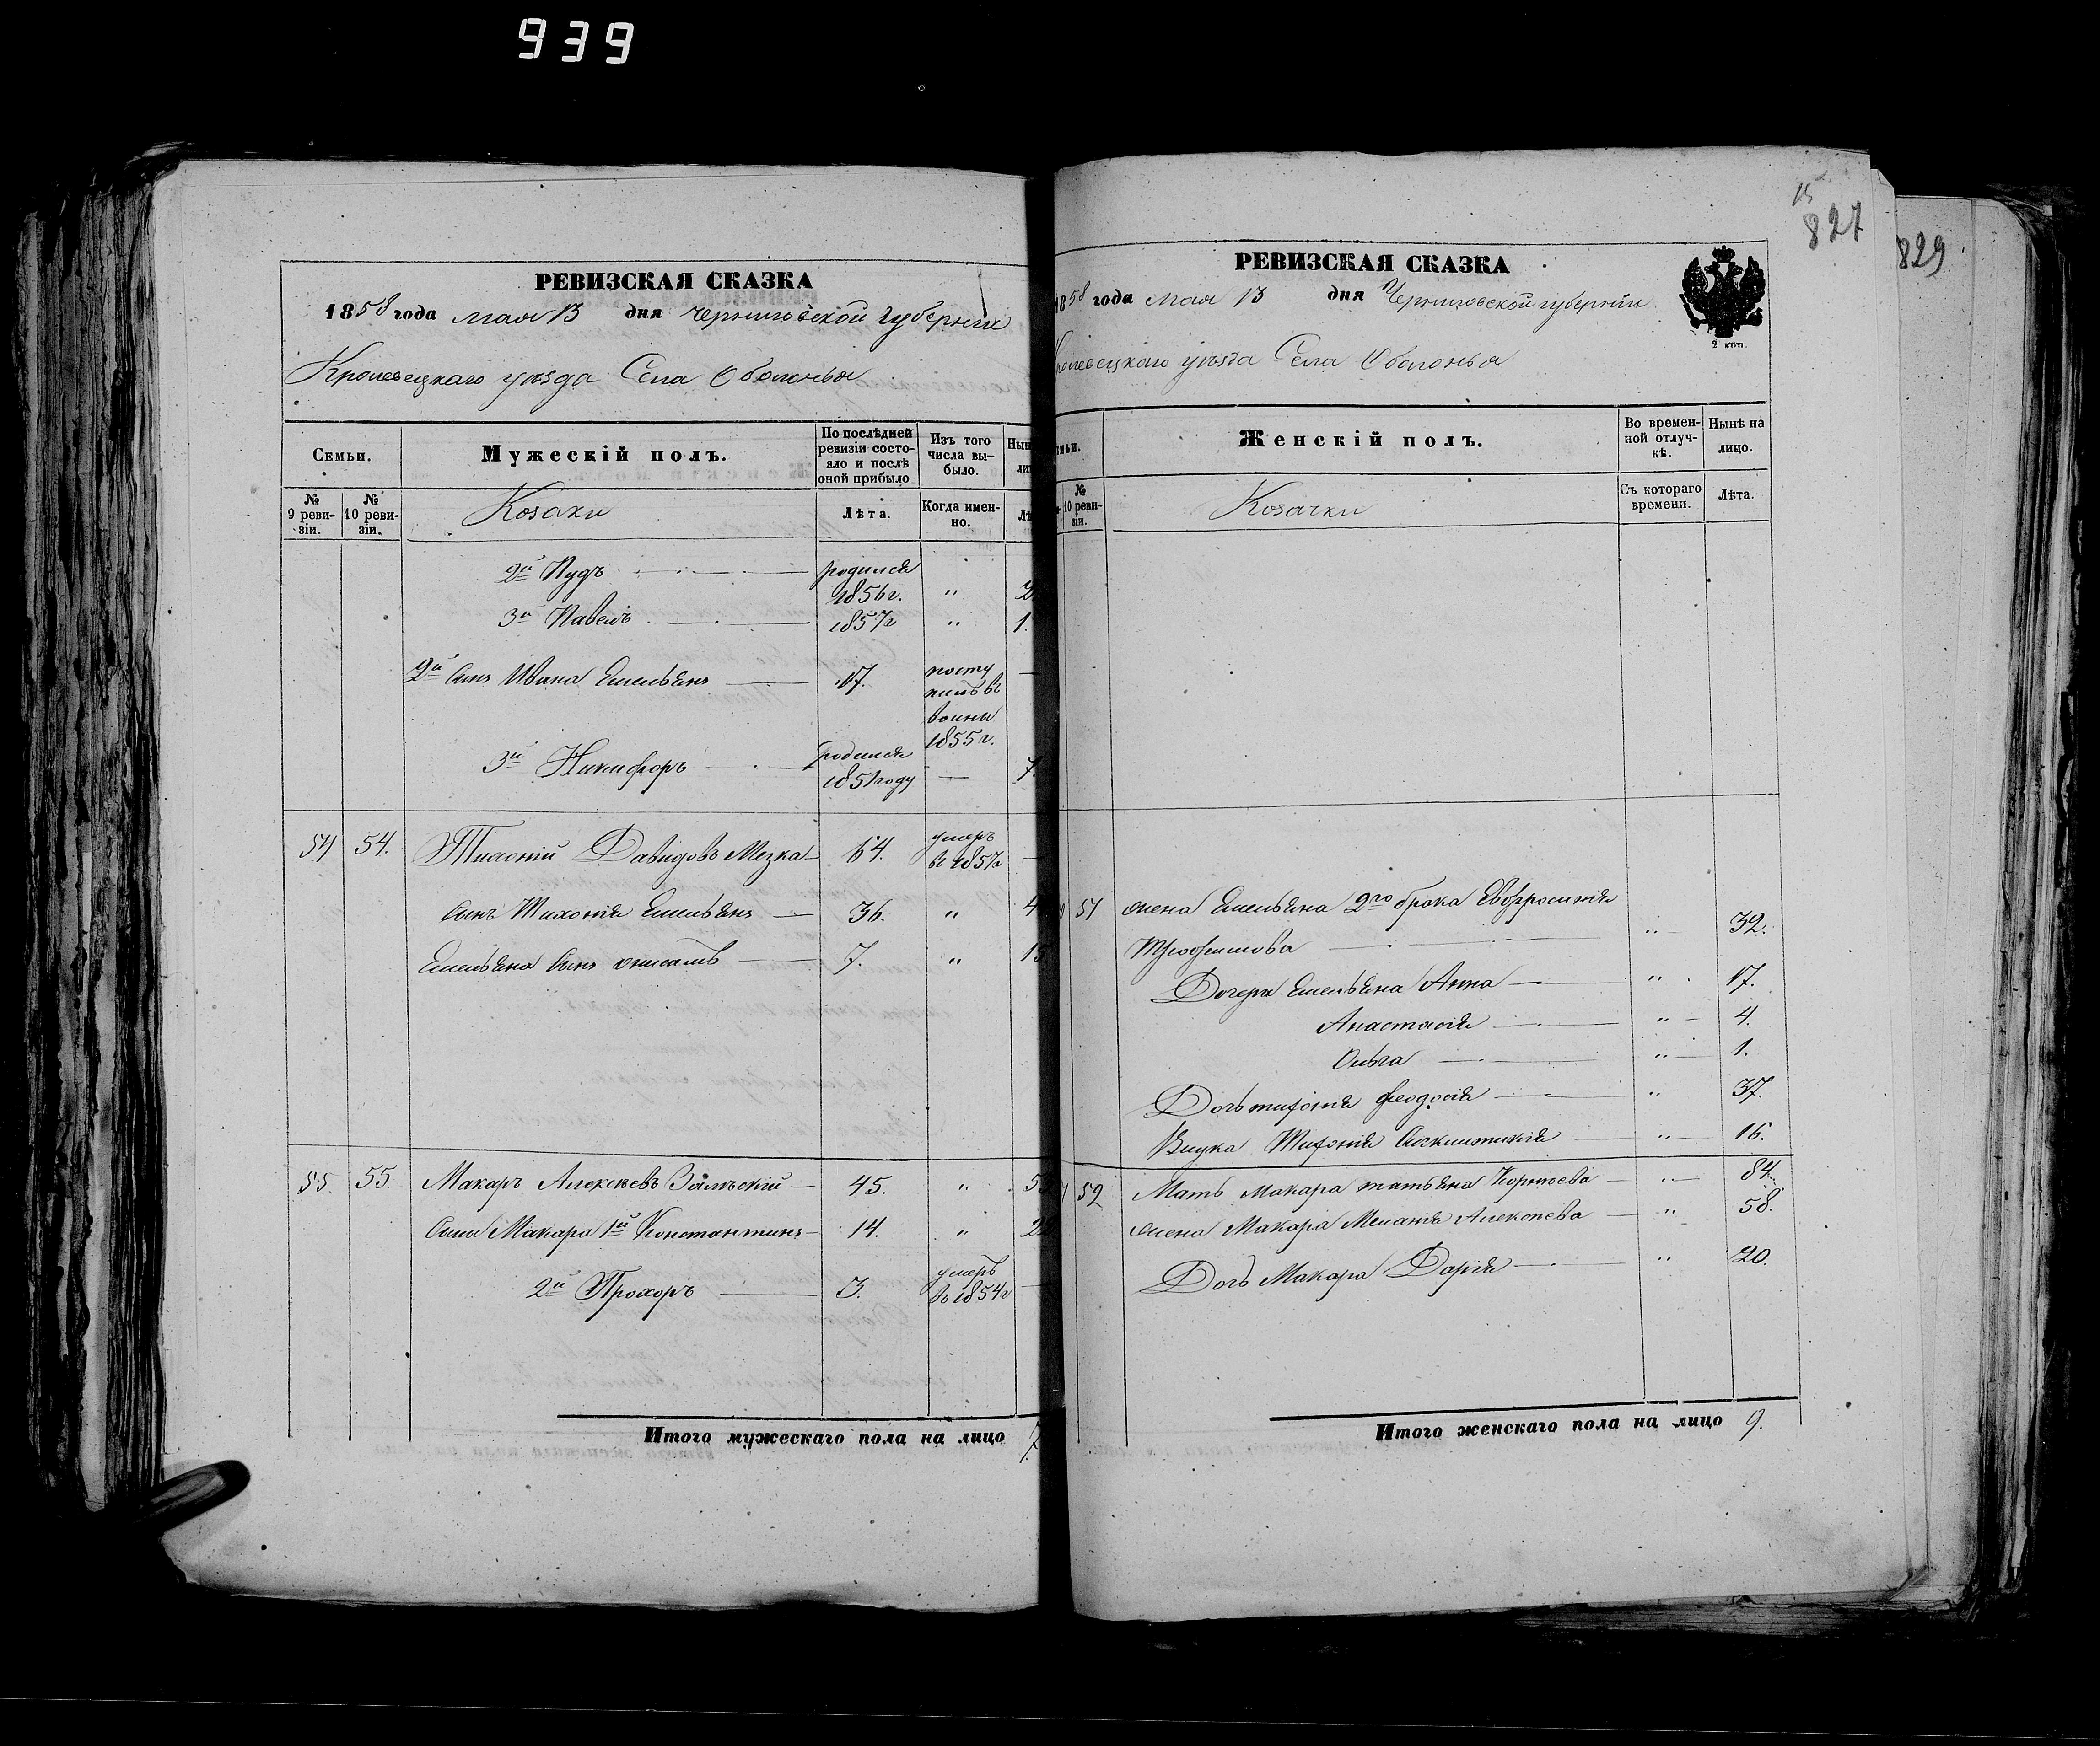 939
РЕВИЗСКАЯ СКАЗКА
1858 года мая 13 дня Черниговской губернии
Кролевецкаго уѣзда Села Оболонья
Семьи.
Мужескій полъ.
По послѣдней ревизіи состояло и послѣ оной прибыло
Изъ того числа выбыло.
Нын
№ 9 ревизіи.
№ 10 ревизіи.
Козаки
Лѣта.
Когда именно.
Лѣ
2й Пудъ родился 1856 г. " 2
3й Павелъ 1857 г " 1.
2й Сынъ Ивана Емельянъ 17. поступилъ въ воины 1855 г. —
3й Никифоръ родился 1851 году — 7
54 54. Тихоній Давидовъ Мезка 64. умеръ въ 1857 г —
Сынъ Тихонія Емельянъ 36. " 4
Емельяна Сынъ 7. " 15
55. 55. Макаръ Алексѣевъ 45. " 5
Сыны Макара 1й Константинъ 14. " 2
2й Прохоръ 3. умеръ въ 1854 г —
Итого мужескаго пола на лицо 7
15
827
829
РЕВИЗСКАЯ СКАЗКА
1858 года мая 13 дня Черниговской губерніи
2 коп.
ролевецкаго уѣзда Села Оболонья
мьи.
Женскій полъ.
Во временной отлучкѣ.
Нынѣ на лицо.
№ 10 ревизіи.
Козачки
Съ котораго времени.
Лѣта.
51 жена Емельяна 2го брака Евфросинія
Трофимова " 32.
Дочери Емельяна Анна " 17.
Анастасія " 4.
Ольга " 1.
Дочь тихонія Феодосія " 37.
Внука Тихонія " 16.
52 Мать Макара татьяна " 84.
жена Макара Меланія Алексѣева " 58.
Дочь Макара Дарія " 20.
Итого женскаго пола на лицо 9.